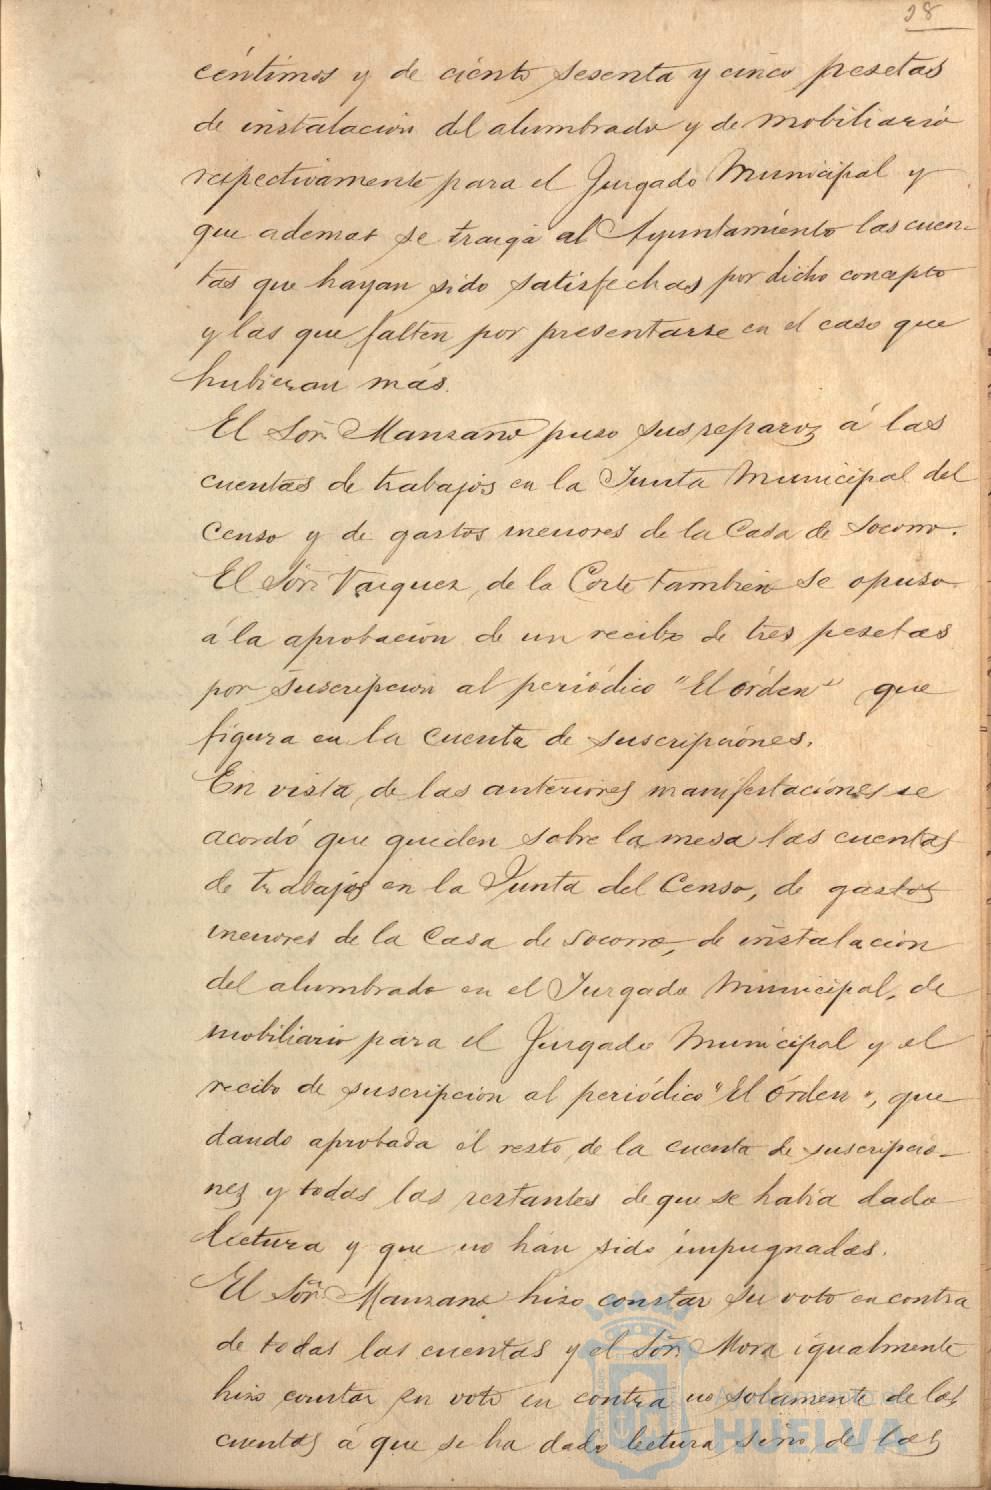 28
céntimos y de ciento sesenta y cinco pesetas
de instalacion del alumbrado y de mobiliario
respectivamente para el Juzgado Municipal y
que ademas se traiga al Ayuntamiento las cuen-
tas que hayan sido satisfechas por dicho concepto
y las que falten por presentarse en el caso que
hubieran más.
El Sor. Manzano puso sus reparos á las
cuentas de trabajos en la Junta Municipal del
Censo y de gastos menores de la Casa de Socorro.
El Sor. Vazquez de la Corte tambien se opuso
á la aprobacion de un recibo de tres pesetas
por suscripcion al periódico "El órden" que
figura en la cuenta de suscripciones.
En vista de las anteriores manifestaciones se
acordó que queden sobre la mesa las cuentas
de trabajos en la Junta del Censo, de gastos
menores de la Casa de Socorro, de instalacion
del alumbrado en el Juzgado Municipal, de
mobiliario para el Juzgado Municipal y el
recibo de suscripcion al periódico "El Órden", que
dando aprobada el resto de la cuenta de suscripcio-
nes y todas las restantes de que se habia dado
lectura y que no han sido impugnadas.
El Sor. Manzano hizo constar su voto en contra
de todas las cuentas y el Sor. Mora igualmente
hizo constar su voto en contra no solamente de las
cuentas á que se ha dado lectura sino de las
HUELVA